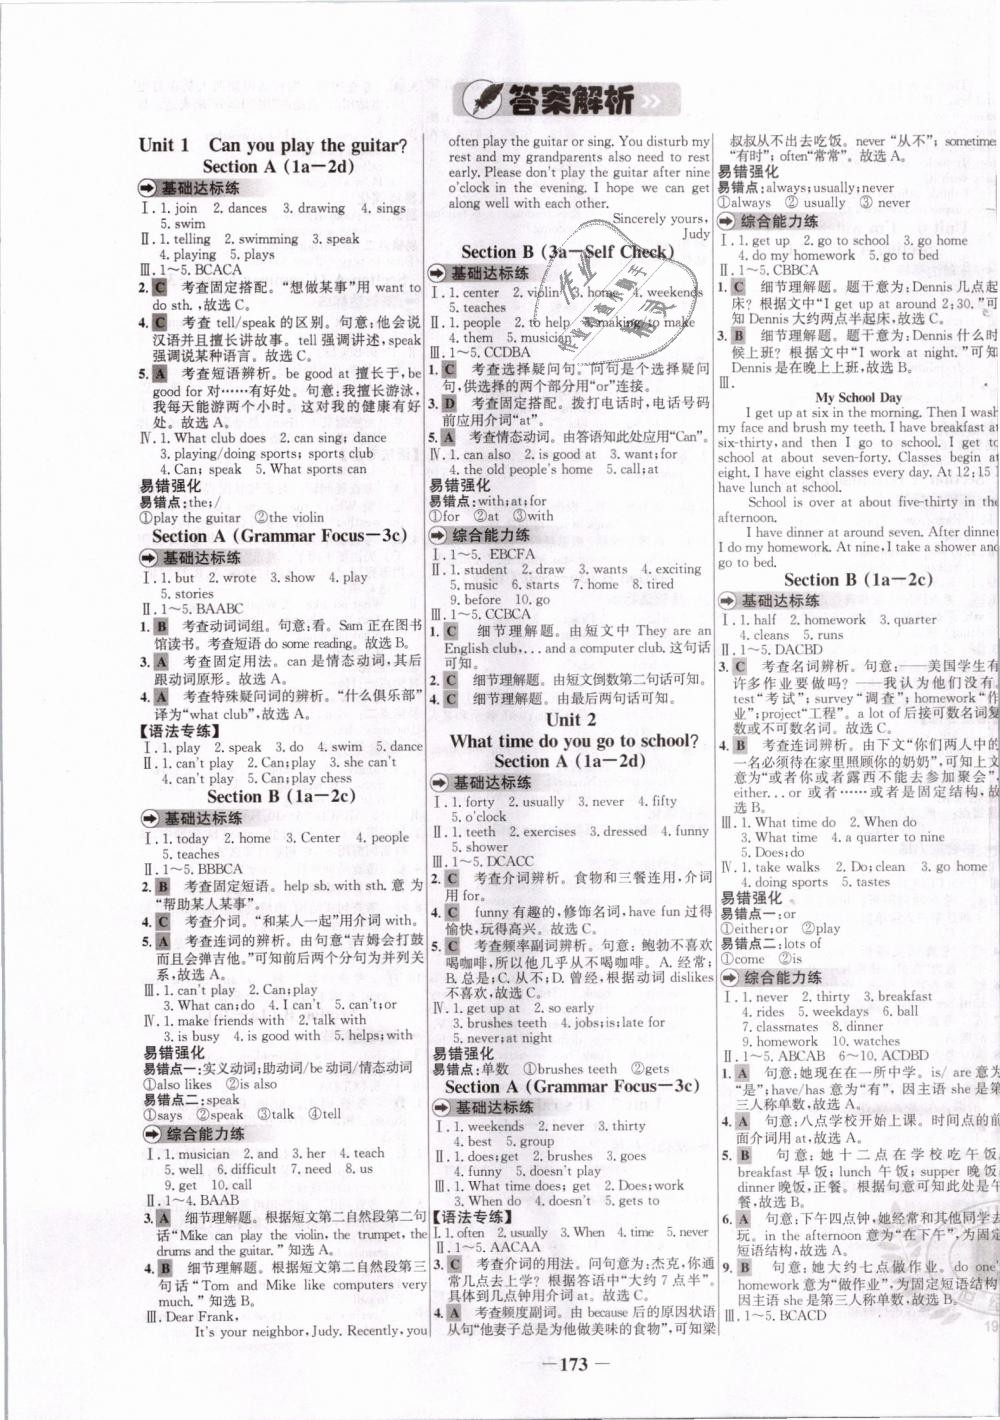 答案解析
Unit 1 Can you play the guitar?
Section A (1a—2d)
基础达标练
Ⅰ. 1. join 2. dances 3. drawing 4. sings
5. swim
Ⅱ. 1. telling 2. swimming 3. speak
4. playing 5. plays
Ⅲ. 1~5. BCACA
2. C 考查固定搭配。“想做某事”用 want to
do sth. ,故选 C。
4. C 考查 tell/speak 的区别。句意:他会说
汉语并且擅长讲故事。tell 强调讲述,speak
强调说某种语言。故选 C。
5. A 考查短语辨析。be good at 擅长于,be
good for 对……有好处。句意:我擅长游泳,
我每天能游两个小时。这对我的健康有好
处。故选 A。
Ⅳ. 1. What club does 2. can sing; dance
3. playing/doing sports; sports club
4. Can; speak 5. What sports can
易错强化
易错点:the;/
①play the guitar ②the violin
Section A (Grammar Focus—3c)
基础达标练
Ⅰ. 1. but 2. wrote 3. show 4. play
5. stories
Ⅱ. 1~5. BAABC
1. B 考查动词词组。句意:看。Sam 正在图书
馆读书。考查短语 do some reading。故选 B。
3. A 考查固定用法。can 是情态动词,其后
跟动词原形。故选 A。
4. A 考查特殊疑问词的辨析。“什么俱乐部”
译为“what club”,故选 A。
【语法专练】
Ⅰ. 1. play 2. speak 3. do 4. swim 5. dance
Ⅱ. 1. can't play 2. Can;play 3. she can't
4. can't play 5. Can;play chess
Section B (1a—2c)
基础达标练
Ⅰ. 1. today 2. home 3. Center 4. people
5. teaches
Ⅱ. 1~5. BBBCA
2. B 考查固定短语。help sb. with sth. 意 为
“帮助某人某事”。
4. C 考查介词。“和某人一起”用介词 with。
5. A 考查连词的辨析。由句意“吉姆会打鼓
而且会弹吉他。”可知前后两个分句为并列关
系,故选 A。
Ⅲ. 1. can't play 2. Can;play
3. What can;do 4. I can't 5. can't;or
Ⅳ. 1. make friends with 2. talk with
3. is busy 4. is good with 5. helps;with
易错强化
易错点一:实义动词;助动词/be 动词/情态动词
①also likes ②is also
易错点二:speak
①says ②speak ③talk ④tell
综合能力练
Ⅰ. 1. musician 2. and 3. her 4. teach
5. well 6. difficult 7. need 8. us
9. get 10. call
Ⅱ. 1~4. BAAB
3. A 细节理解题。根据短文第二自然段第二句
话“Mike can play the violin, the trumpet, the
drums and the guitar.”知选 A。
4. B 细节理解题。根据短文第二自然段第三
句话“Tom and Mike like computers very
much.”知选 B。
Ⅲ. Dear Frank,
It's your neighbor, Judy. Recently, you
often play the guitar or sing. You disturb my
rest and my grandparents also need to rest
early. Please don't play the guitar after nine
o'clock in the evening. I hope we can get
along well with each other.
Sincerely yours,
Judy
Section B (3a—Self Check)
基础达标练
Ⅰ. 1. center 2. violin 3. home 4. weekends
5. teaches
Ⅱ. 1. people 2. to help 3. making to make
4. them 5. musician
Ⅲ. 1~5. CCDBA
1. C 考查选择疑问句。问句是个选择疑问
句,供选择的两个部分用“or”连接。
3. D 考查固定搭配。拨打电话时,电话号码
前应用介词“at”。
5. A 考查情态动词。由答语知此处应用“Can”。
Ⅳ. 1. can also 2. is good at 3. want;for
4. the old people's home 5. call;at
易错强化
易错点:with;at;for
①for ②at ③with
综合能力练
Ⅰ. 1~5. EBCFA
Ⅱ. 1. student 2. draw 3. wants 4. exciting
5. music 6. starts 7. home 8. tired
9. before 10. go
Ⅲ. 1~5. CCBCA
1. C 细节理解题。由短文中 They are an
English club,... and a computer club. 这句话
可知。
2. C 细节理解题。由短文倒数第二句话可知。
4. C 细节理解题。由最后两句话可知。
Unit 2
What time do you go to school?
Section A (1a—2d)
基础达标练
Ⅰ. 1. forty 2. usually 3. never 4. fifty
5. o'clock
Ⅱ. 1. teeth 2. exercises 3. dressed 4. funny
5. shower
Ⅲ. 1~5. DCACC
2. C 考查介词辨析。食物和三餐连用,介词
用 for。
4. C funny 有趣的,修饰名词,have fun 过得
愉快,玩得高兴。故选 C。
5. C 考查频率副词辨析。句意:鲍勃不喜欢
喝咖啡,所以他几乎从不喝咖啡。A. 经常;
B. 总是;C. 从不;D. 曾经,根据动词 dislikes
不喜欢,故选 C。
Ⅳ. 1. get up at 2. so early
3. brushes teeth 4. jobs;is;late for
5. never;at night
易错强化
易错点:单数 ①brushes teeth ②gets
Section A (Grammar Focus—3c)
基础达标练
Ⅰ. 1. weekends 2. never 3. thirty
4. best 5. group
Ⅱ. 1. does;get 2. brushes 3. goes
4. funny 5. doesn't play
Ⅲ. 1. What time does; get 2. Does;work
3. When do 4. doesn't 5. gets to
【语法专练】
Ⅰ. 1. often 2. usually 3. When 4. time 5. never
Ⅱ. 1~5. AACAA
3. C 考查介词的用法。问句意为:杰克,你通
常几点去上学?根据答语中“大约 7 点半”。
具体到几点用介词 at。故选 C。
4. A 考查频度副词。由 because 后的原因状语
从句“他妻子总是为他做美味的食物”,可知梁
叔叔从不出去吃饭。never “从不”; sometime
“有时”; often“常常”。故选 A。
易错强化
易错点:always;usually;never
①always ② usually ③ never
综合能力练
Ⅰ. 1. get up 2. go to school 3. go home
4. do my homework 5. go to bed
Ⅱ. 1~5. CBBCA
2. C 细节理解题。题干意为:Dennis 几点起
床? 根据文中“I get up at around 2:30.”可
知 Dennis 大约两点半起床,故选 C。
3. B 细节理解题。题干意为:Dennis 什么时
候上班? 根据文中“I work at night.”可知
Dennis 是在晚上上班,故选 B。
Ⅲ.
My School Day
I get up at six in the morning. Then I wash
my face and brush my teeth. I have breakfast at
six-thirty, and then I go to school. I get to
school at about seven-forty. Classes begin at
eight. I have eight classes every day. At 12:15 I
have lunch at school.
School is over at about five-thirty in the
afternoon.
I have dinner at around seven. After dinner
I do my homework. At nine, I take a shower and
go to bed.
Section B (1a—2c)
基础达标练
Ⅰ. 1. half 2. homework 3. quarter
4. cleans 5. runs
Ⅱ. 1~5. DACBD
3. C 考查名词辨析。句意:——美国学生有
许多作业要做吗? ——我认为他们没有。
test“考试”; survey“调查”; homework“作
业”;project“工程”。a lot of 后接可数名词复
数或不可数名词。故选 C。
4. B 考查连词辨析。由下文“你们两人中的
一名必须待在家里照顾你的奶奶”,可知上文
意为“或者你或者露西不能去参加聚会”,
either... or 或者……或者是固定结构,故
选 B。
Ⅲ. 1. What time do 2. When do
3. What time 4. a quarter to nine
5. Does;do
Ⅳ. 1. take walks 2. Do;clean 3. go home
4. doing sports 5. tastes
易错强化
易错点一:or
①either;or ②play
易错点二:lots of
①come ②is
综合能力练
Ⅰ. 1. never 2. thirty 3. breakfast
4. rides 5. weekdays 6. ball
7. classmates 8. dinner
9. homework 10. watches
Ⅱ. 1~5. ABCAB 6~10. ACDBD
1. A 句意:她现在在一所中学。is/ are 意为
“是”;have/has 意为“有”,因主语 she 是第
三人称单数,故选 A。
4. A 句意:八点学校开始上课。时间点的前
面介词用 at,故选 A。
5. B 句意:她十二点在学校吃午饭。
breakfast 早饭; lunch 午饭; supper 晚饭
dinner 晚饭,正餐。根据句意可知此处是午
餐,故选 B。
6. A 句意:下午四点钟,她经常和其他同学去
玩。in the afternoon 意为“在下午”,为固定
短语结构,故选 A。
9. B 句意:她大约七点做作业。do one'
homework 意为“做作业”,为固定短语结构
因主语 she 是第三人称单数,故选 B。
Ⅲ. 1~5. BCACD
—173—